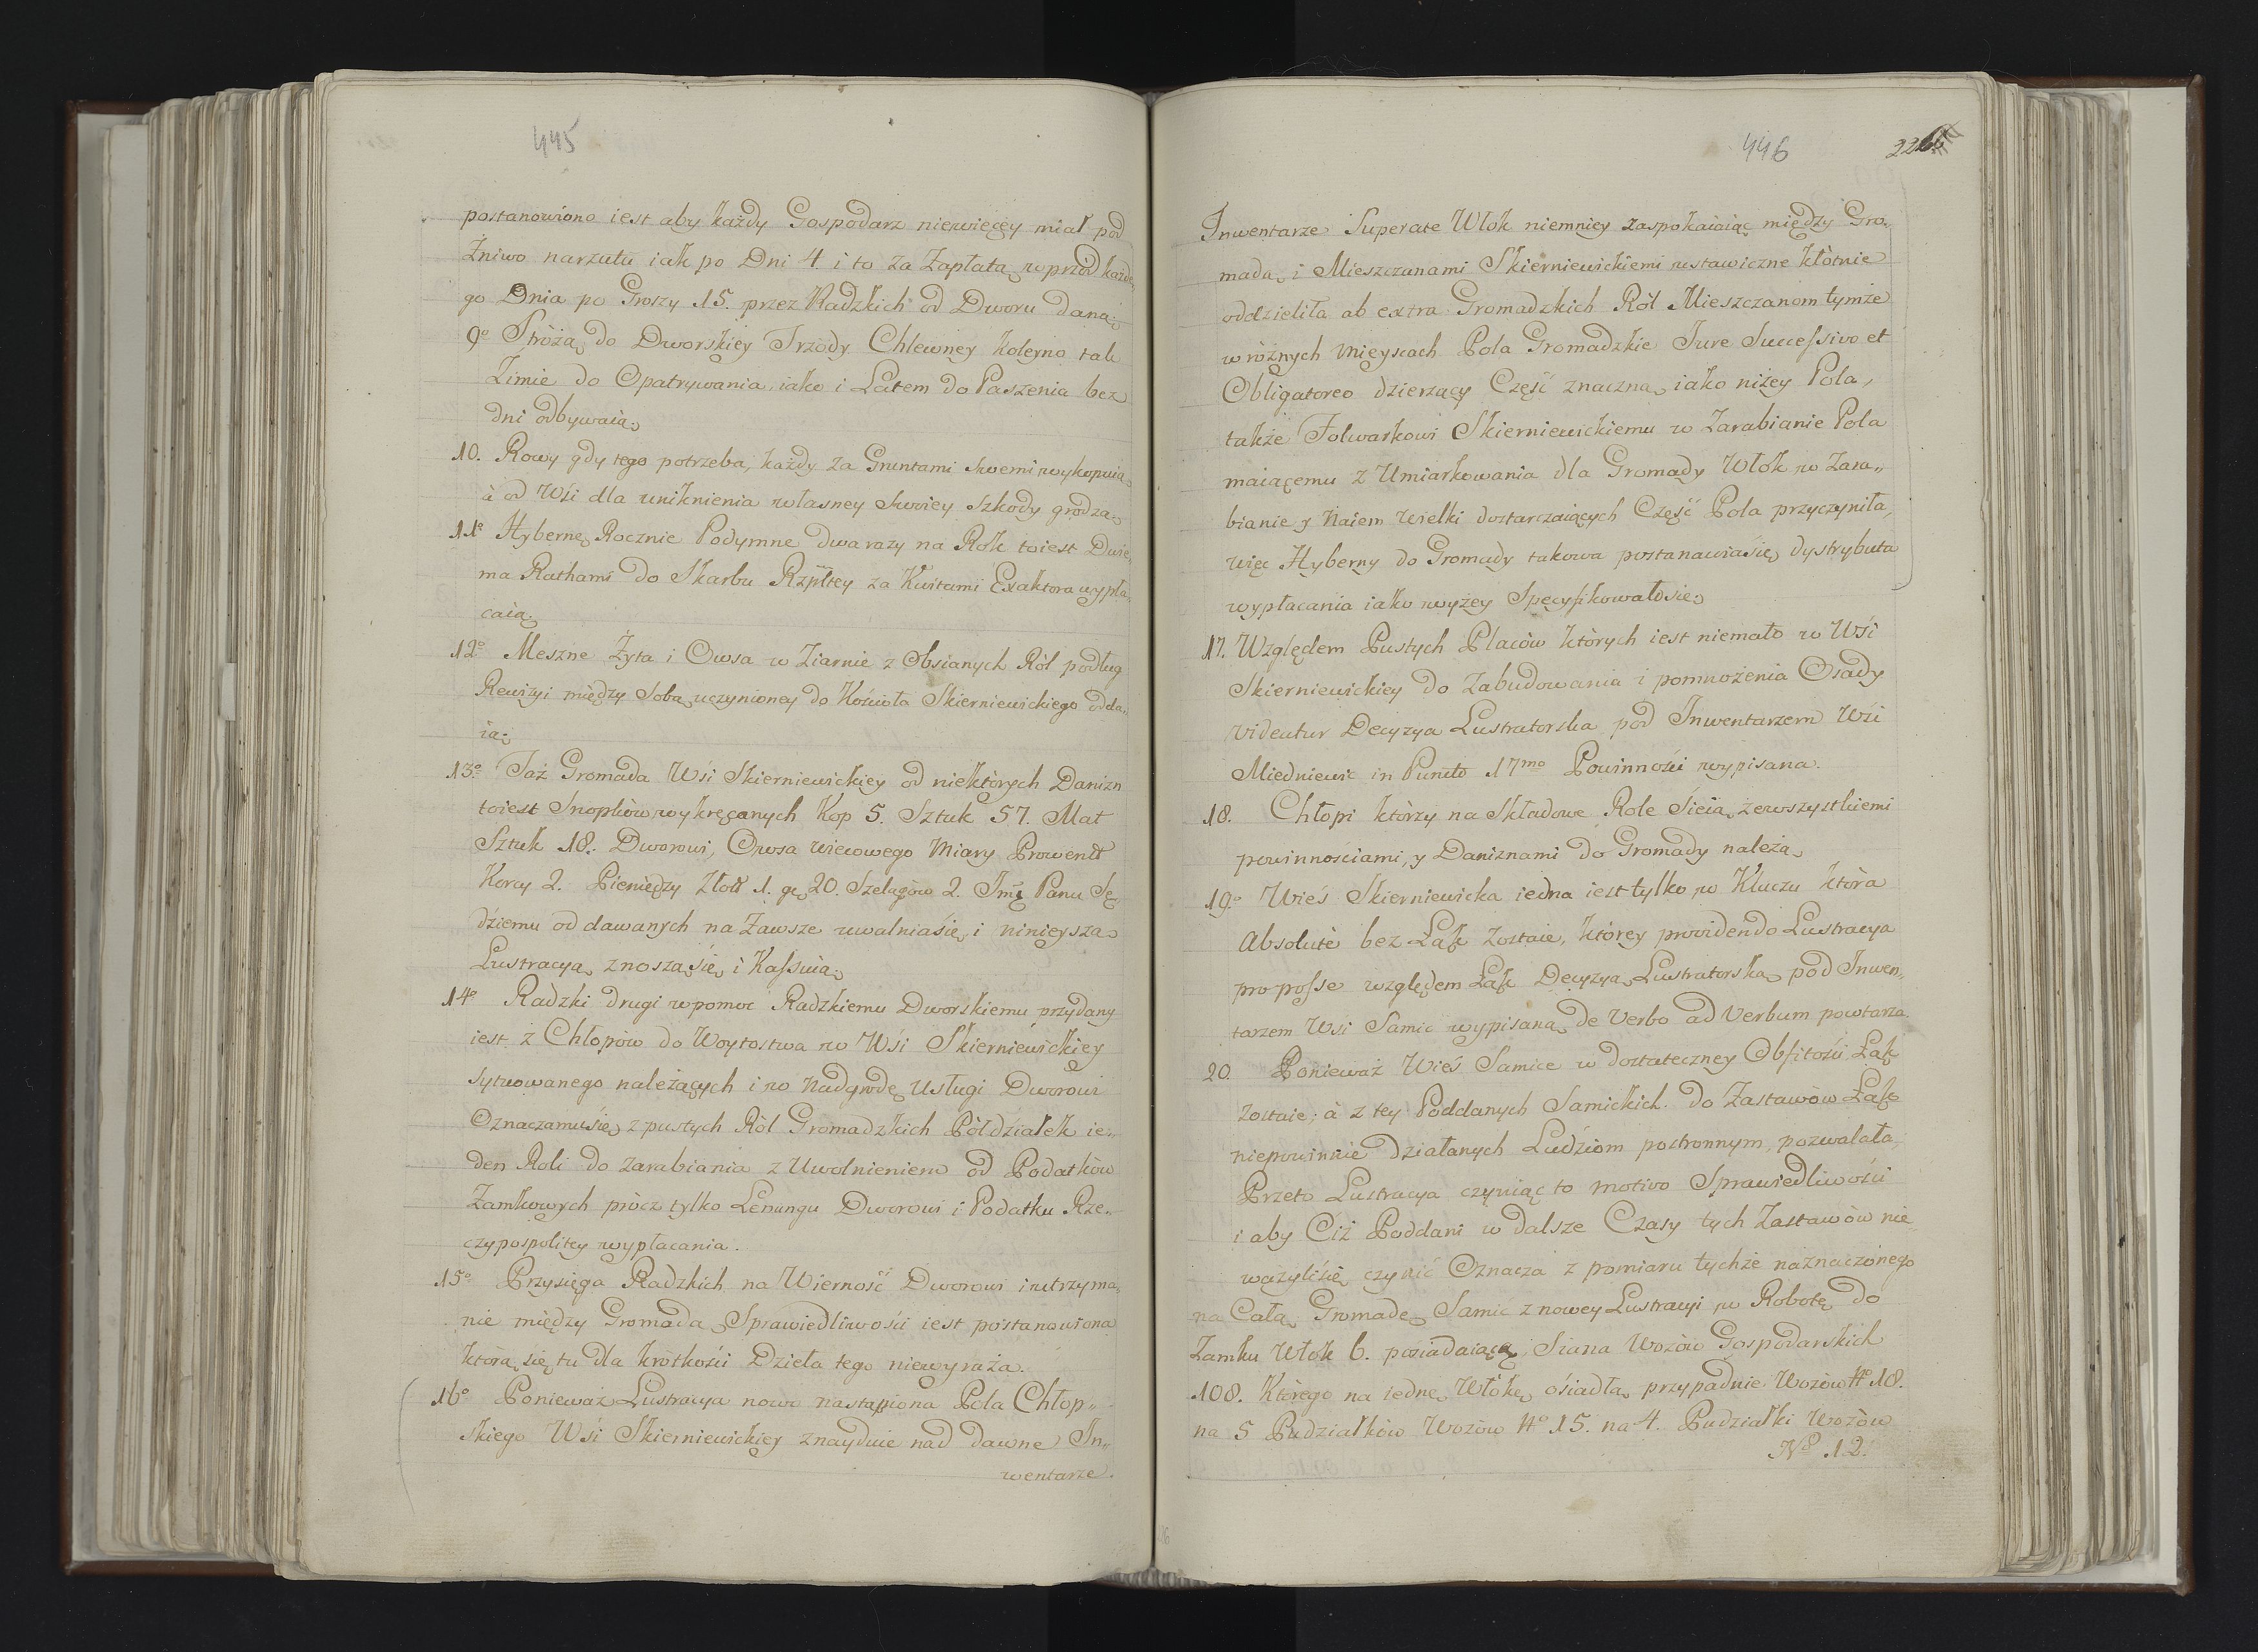 445
postanowiono iest aby każdy Gospodarz niewięcey miał pod
Żniwo narzutu iak po Dni 4. i to za Zapłatą wprzód każde
go Dnia po Groszy 15. przez Radzkich od Dworu daną.
9o Stróżą do Dworskiey Trzody Chlewney koleyno tak
Zimie do Opatrywania iako i Latem do Paszenia bez
dni odbywaią.
10. Rowy gdy tego potrzeba, każdy za Gruntami swemi wykopuią
à od Wśi dla uniknienia własney swoiey Szkody grodzą.
11o Hybernę Rocznie Podymne dwa razy na Rok toiest Dwie
ma Rathami do Skarbu Rzpltey za Kwitami Exaktora wypła„
caią.
12o Meszne Żyta i Owsa w Ziarnie z Obsianych Ról podług
Rewizyi między Sobą uczynioney do Kościoła Skierniewickiego odda„
ią.
13o Taż Gromada Wśi Skierniewickiey od niektórych Danizn
toiest Snopków wykręcanych Kop 5. Sztuk 57. Mat
Sztuk 18. Dworowi, Owsa wiecowego Miary Prowent
Korcy 2. Pieniędzy Złott 1. gr 20. Szelągów 2. Jmć Panu Sę
dziemu oddawanych na Zawsze uwalniasię, i ninieyszą
Lustracyą znoszą się i Kassuią.
14o Radzki drugi w pomoc Radzkiemu Dworskiemu przydany
iest z Chłopów do Woytostwa w Wśi Skierniewickiey
sytuowanego należących i w Nadgrodę Usługi Dworowi
Oznaczamusię z pustych Ról Gromadzkich Półdziałek ie„
den Roli do zarabiania z Uwolnieniem od Podatków
Zamkowych prócz tylko Lenungu Dworowi i Podatku Rze„
czypospolitey wypłacania.
15o Przysięga Radzkich na Wierność Dworowi i utrzyma„
nie między Gromadą Sprawiedliwości iest postanowiona
która się tu dla krótkości Dzieła tego niewyraża.
16o Ponieważ Lustracya nowo nastąpiona Pola Chłop„
skiego Wśi Skierniewickiey znayduie nad dawne In„
wentarze.
446
226
Inwentarze Superate Włok niemniey zaspokaiaiąc między Gro„
madą i Mieszczanami Skierniewickiemi ustawiczne kłótnie
oddzieliła ab extra Gromadzkich Ról Mieszczanom tymże
w różnych Mieyscach Pola Gromadzkie Jure Successivo et
Obligatoreo dzierzący Część znaczną iako niżey Pola,
także Folwarkowi Skierniewickiemu w Zarabianie Pola
maiącemu z Umiarkowania dla Gromady Włok w Zara„
bianie y Naiem wielki dostarczaiących Część Pola przyczyniła,
więc Hyberny do Gromady takowa postanawiasię dystrybuta
wypłacania iako wyżey Specyfikowałosię.
17. Względem Pustych Placów których iest niemało w Wśi
Skierniewickiey do Zabudowania i pomnożenia Osady
videatur Decyzya Lustratorska pod Inwentarzem Wśi
Miedniewic in Puncto 17mo Powinności wypisana.
18. Chłopi którzy na Składowe Role Sieią zewszystkiemi
powinnościami, y Daniznami do Gromady należą.
19o Wieś Skierniewicka iedna iest tylko w Kluczu która
Absolutè bez Łąk zostaie, którey providendo Lustracya
pro posse względem Łąk Decyzyą Lustratorską pod Inwen„
tarzem Wśi Samic wypisaną de Verbo ad Verbum powtarza.
20. Ponieważ Wieś Samice w dostateczney Obfitości Łąk
zostaie, à z tey Poddanych Samickich do Zastawów Łąk
niepowinnie działanych Ludziom postronnym, pozwalała,
Przeto Lustracya czyniąc to motivo Sprawiedliwości
i aby Ciż Poddani w dalsze Czasy tych Zastawów nie
ważylisię czynić Oznacza z pomiaru tychże naznaczonego
na Całą Gromadę Samic z nowey Lustracyi w Robotę do
Zamku Włok 6. posiadaiącą Siana Wozów Gospodarskich
108. Którego na iednę Włókę osiadłą przypadnie Wozów No 18.
na 5 Pudziałków Wozów No 15. na 4. Pudziałki Wozów
No 12.